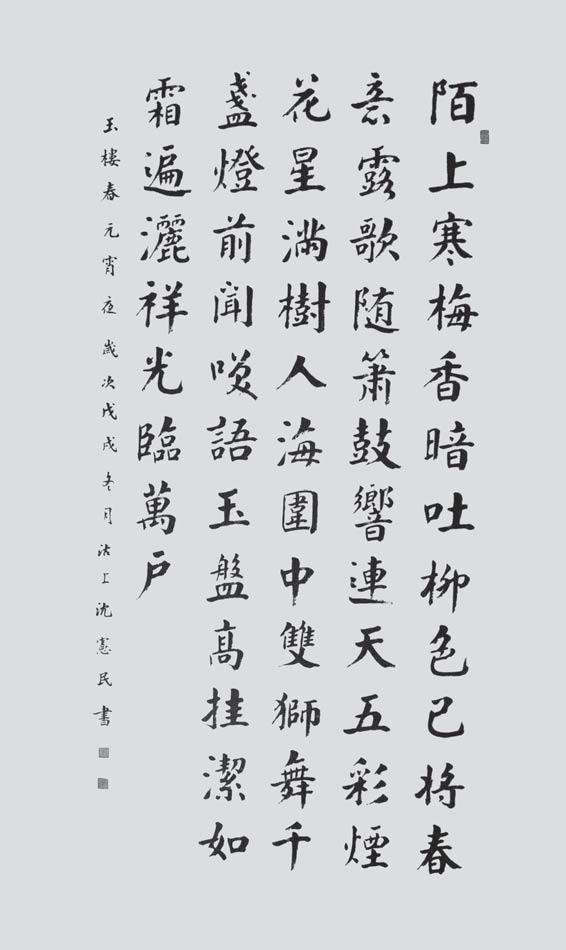 陌上寒梅香暗吐柳色已将春
意露歌随箫鼓響連天五彩煙
花星满樹人海圍中雙獅舞千
盞燈前聞唤語玉盤高挂潔如
霜遍灑祥光臨萬户
玉樓春元宵夜歲次戊戌冬月沽上沈憲民書